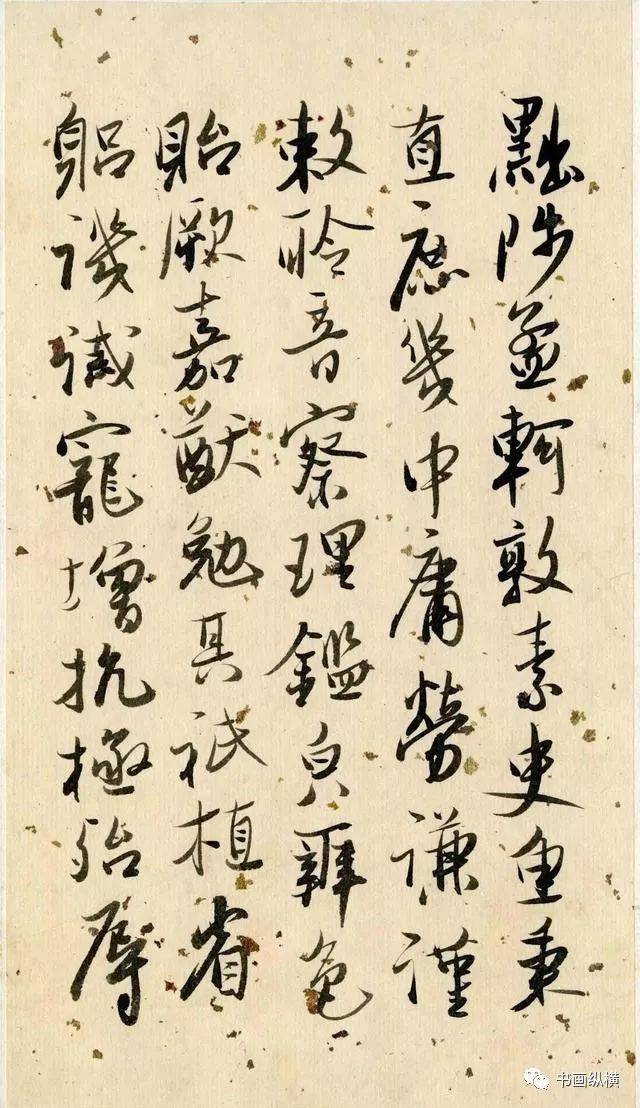 黜陟孟軻敦素史魚秉
直庶幾中庸勞謙謹
敕聆音察理鑑皃辨色
貽厥嘉猷勉其祗植省
躬譏誡寵增抗極殆辱
书画纵横